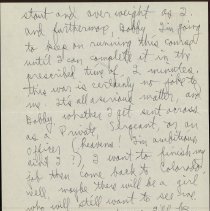 stout and overweight as I.
and furthermore Bobby I'm going
to keep on running this course
until I can complete it in the
prescribed time of 2 minutes,
this war is certainly no joke to
me. Its all a serious matter, and
Bobby whether I get across
as a Private, Sergeant or an
officer (heavens! I'm ambitious
aint I?), I want to finish my
job then come back to Colorado
well maybe there will be a girl
who will still want to see
I'll be